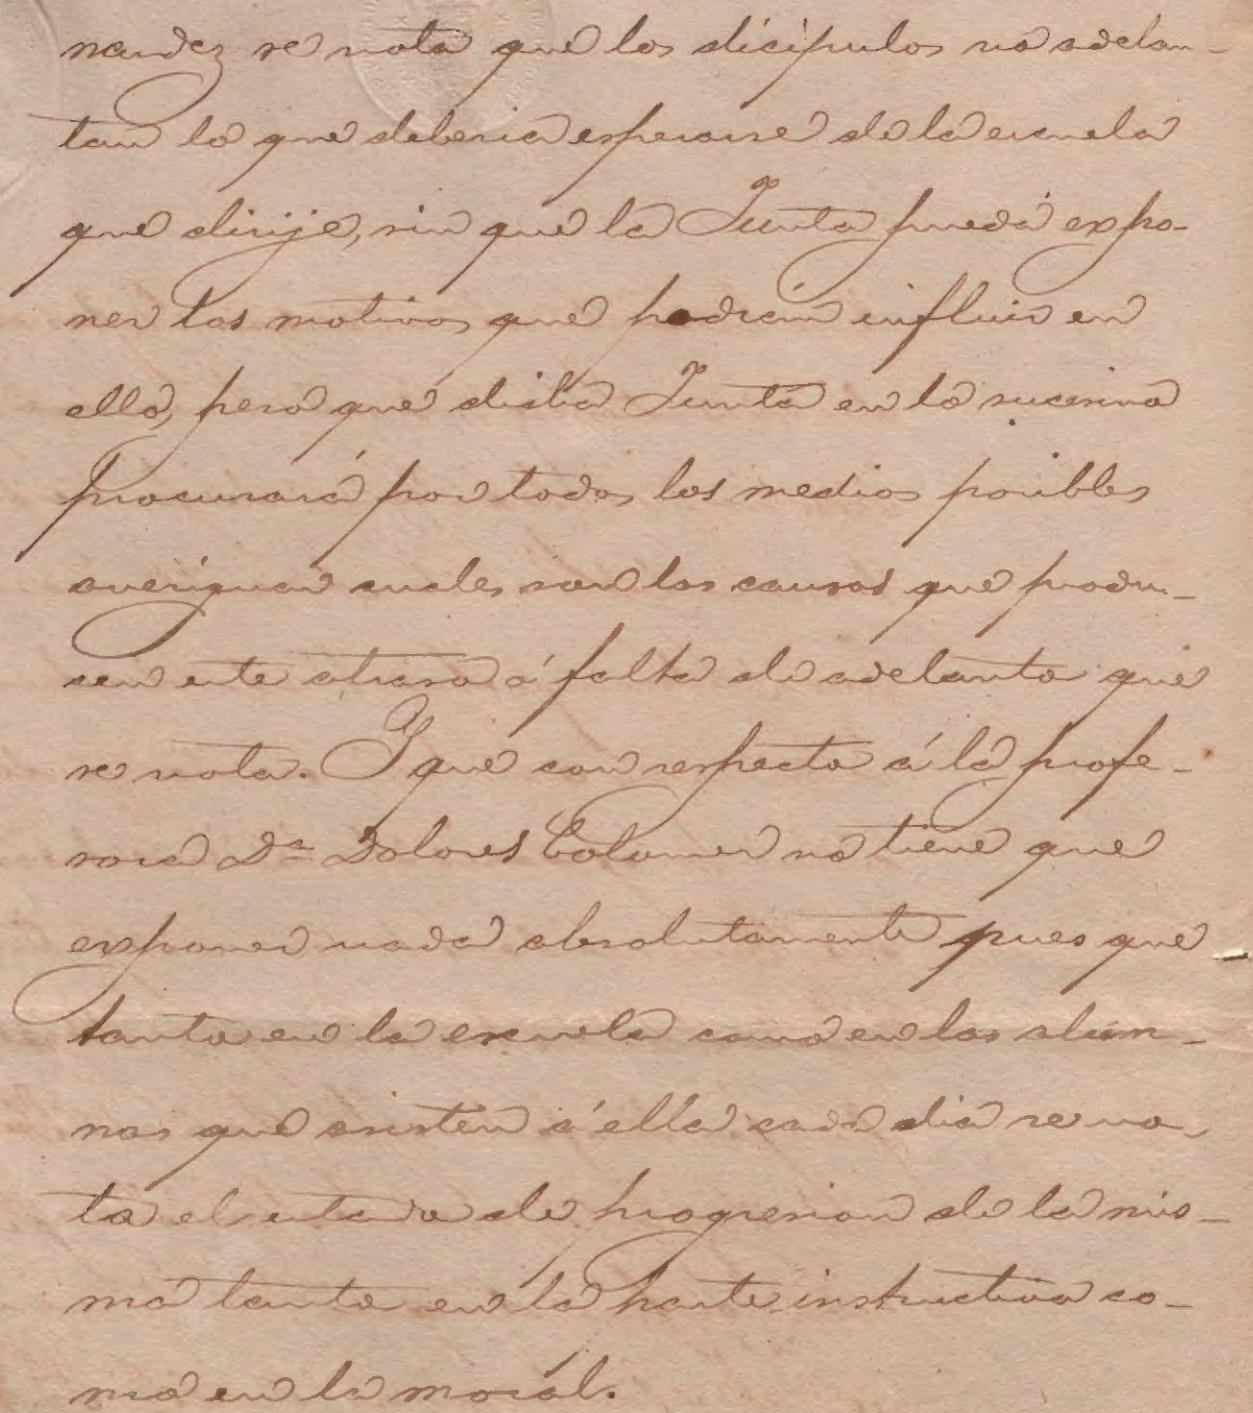 nandez se nota que los dicipulos no adelan-
tan lo que deberia esperarse de la escuela
que dirije, sin que la Junta pueda expo-
ner los motivos que podrán influir en
ello, pero que dicha Junta en lo sucesivo
procurará por todos los medios posibles
averiguar cuales son las causas que produ-
cen este atraso ó falta de adelanto que
se nota. Y que con respecto á la profe-
sora Dª Dolores Colomer no tiene que
exponer nada absolutamente pues que
tanto en la escuela como en las alum-
nas que asisten á ella cada dia se no-
ta el estado de progresion de la mis-
ma tanto en la parte instructiva co-
mo en la moral.